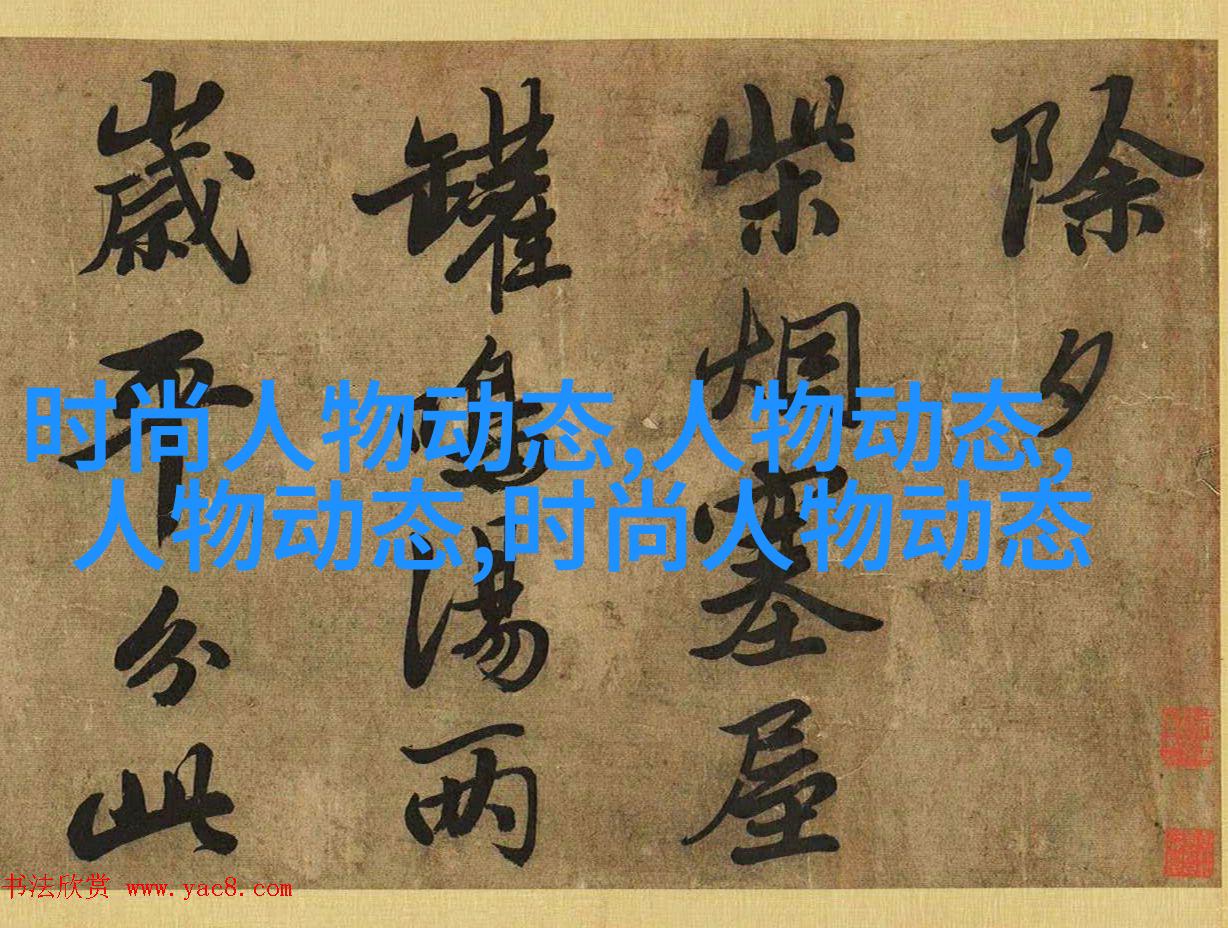 除夕
柴烟塞屋
罐鳴湯两
歲平分此
时尚人物动态,人物动态,
人物动态,时尚人物动态
书法欣赏 www.yac8.com